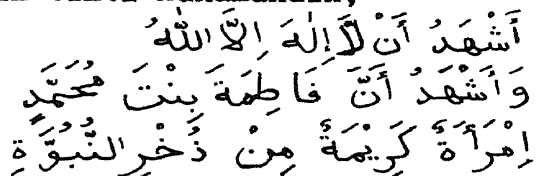 أَشْهَدُ أَنْ لَّآ إِلٰهَ اِلَّا اللّٰهُ
وَأَشْهَدُ أَنَّ فَاطِمَةَ بِنْتَ مُحَمَّدٍ
اِمْرَأَةً كَرِيْمَةً مِنْ ذُخْرِ النُّبُوَّةِ